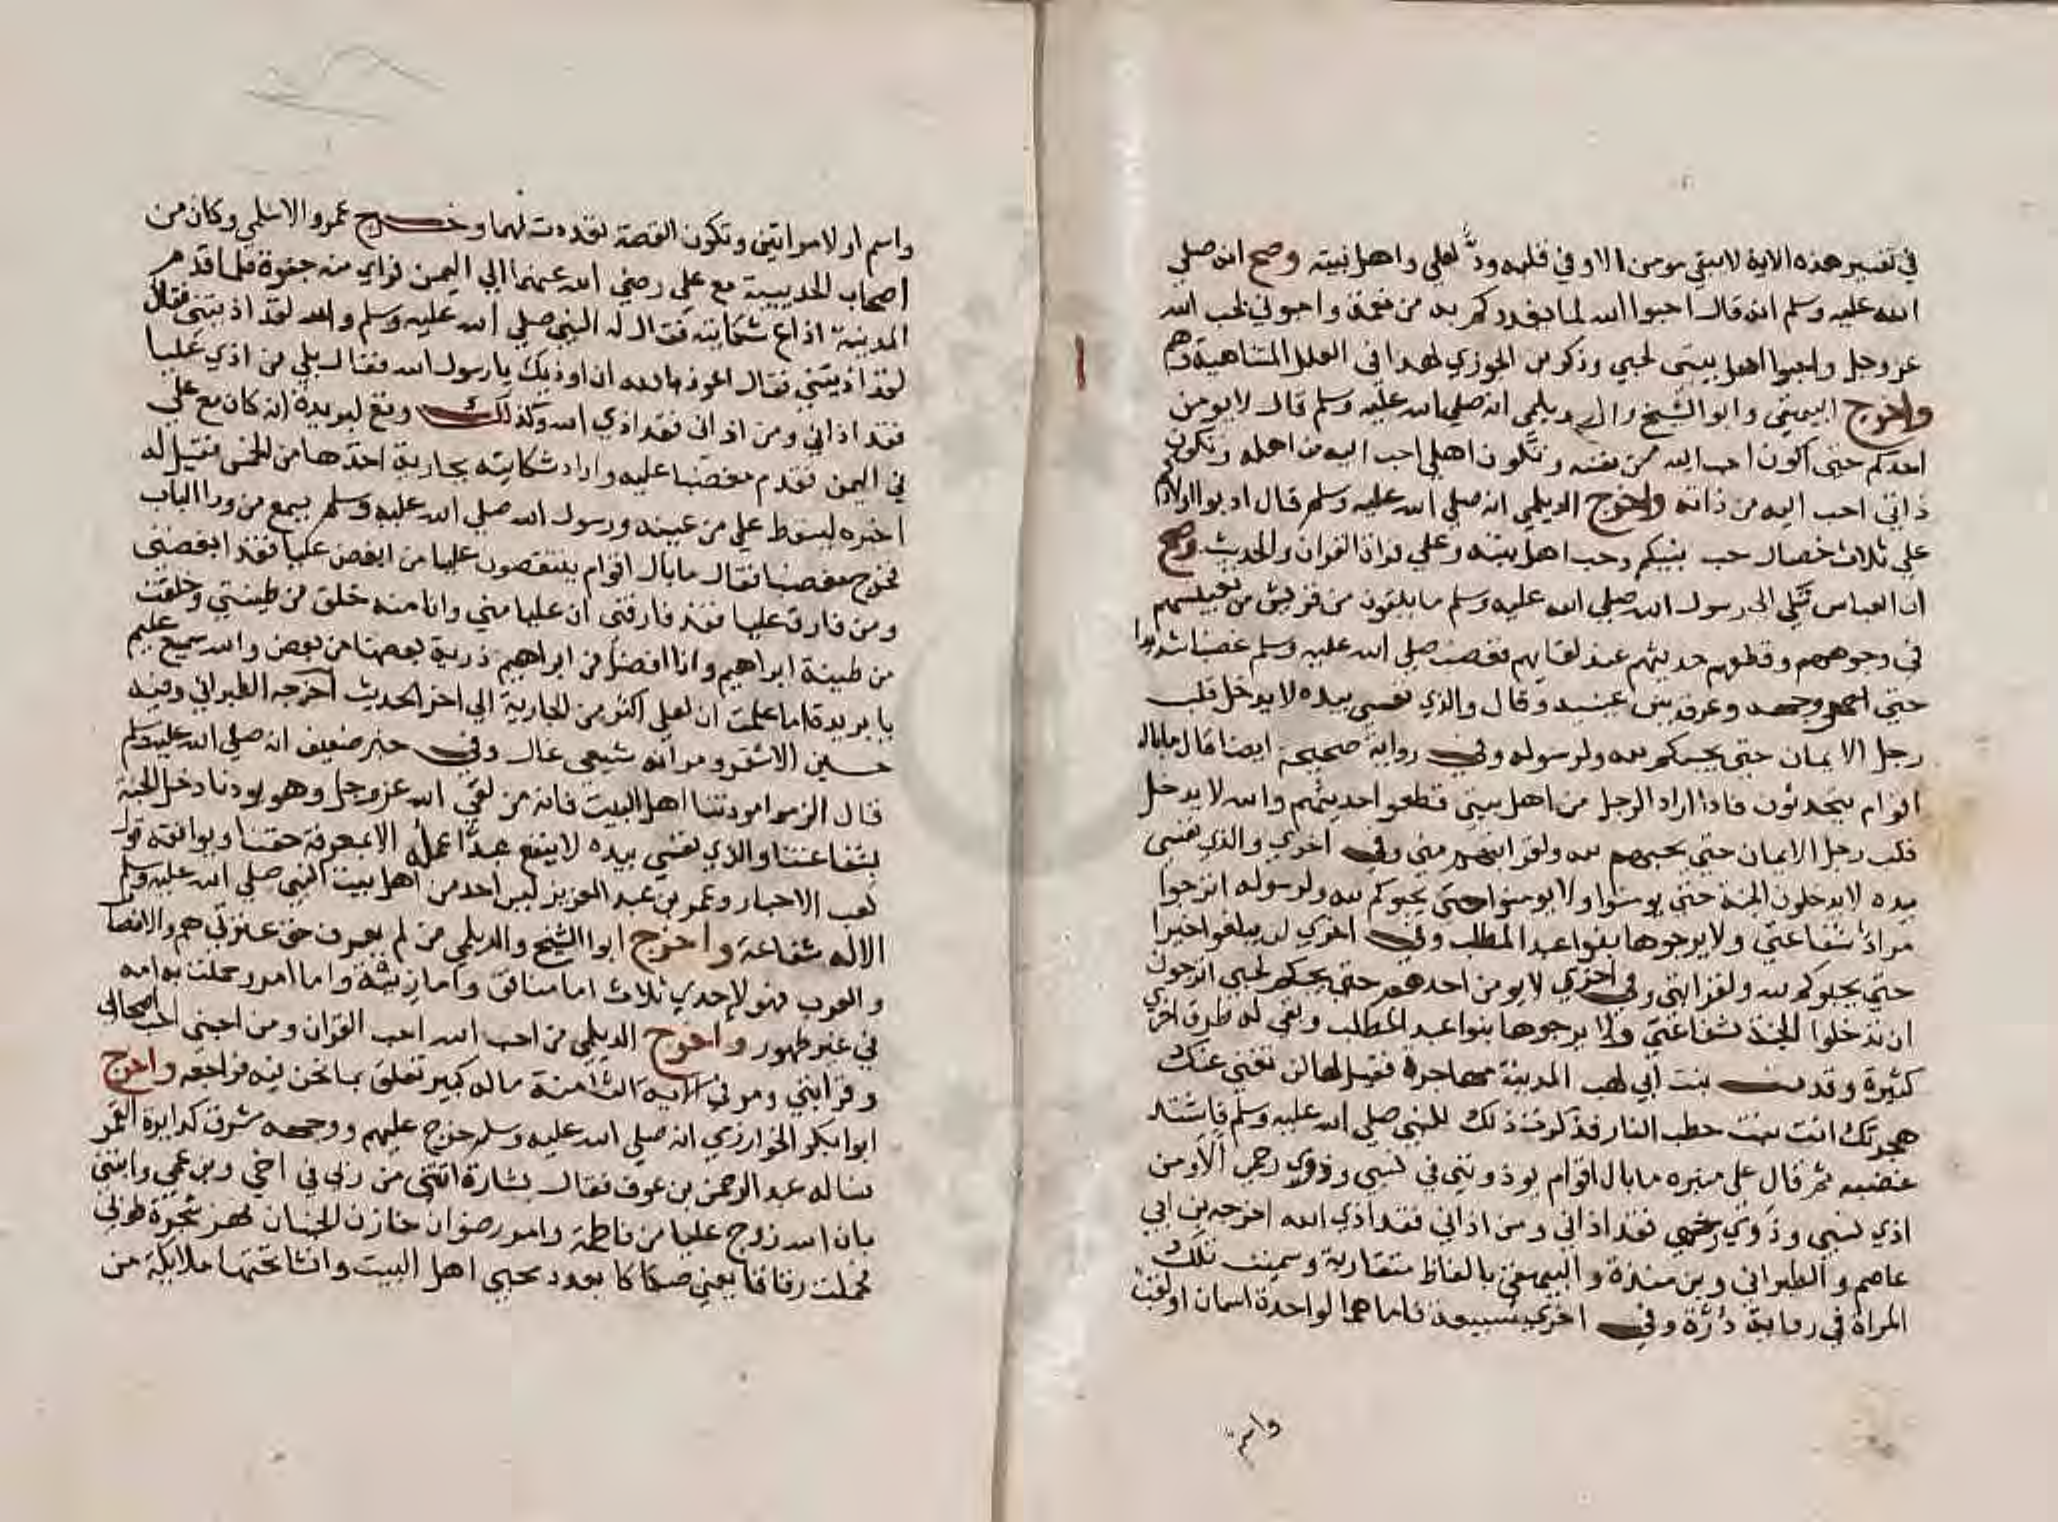 في تفسير هذه الاية لا يبقي مومن الا وفي قلبه ودٌّ لعلي واهل بيته وصح انه صلي
الله عليه وسلم انه قال احبوا الله لما يغدوكم به من نعمة واحبوني لحب الله
عز وجل واحبوا اهل بيتي لحبي وذكر بن الجوزي لهذا في العلل المتناهية وهم
واخرج البيهقي وابو الشيخ والديلمي انه صلي الله عليه وسلم قال لا يومن
احدكم حتي اكون احب اليه من نفسه وتكون اهلي احب اليه من اهله وتكون
ذاتي احب اليه من ذاته واخرج الديلمي انه صلي الله عليه وسلم قال ادبوا اولادكم
علي ثلاث خصال حب نبيكم وحب اهل بيته وعلي قراة القران والحديث وصح
ان العباس شكي الي رسول الله صلي الله عليه وسلم ما يلقون من قريش من تعبيسهم
في وجوههم وقطعهم حديثهم عند لقايهم فغضب صلي الله عليه وسلم غضبا شديدا
حتي احمر وجهه وعرق بين عينيه وقال والذي نفسي بيده لا يدخل قلب
رجل الايمان حتي يحبكم لله ولرسوله وفي رواية صحيحة ايضا قال ما بال
اقوام يتحدثون فاذا اراد الرجل من اهل بيتي قطعوا حديثهم والله لا يدخل
قلب رجل الايمان حتي يحبهم لله ولقرابتهم مني وفي اخري والذي نفسي
بيده لا يدخلون الجنة حتي يومنوا ولا يومنوا حتي يحبوكم لله ولرسوله اترجوا
مراد شفاعتي ولا يرجوها بنوا عبد المطلب وفي اخري لن يبلغوا خيرا
حتي يحبوكم لله ولقرابتي وفي اخري لا يومن احدهم حتي يحبكم لحبي اترجون
ان تدخلوا الجنة بشفاعتي ولا يرجوها بنوا عبد المطلب وبقي له طرق اخري
كثيرة وقدمت بنت ابي لهب المدينة مهاجرة فقيل لها لن تغني عنك
هجرتك انت بنت حطب النار فذكرت ذلك للنبي صلي الله عليه وسلم فاشتد
غضبه ثم قال علي منبره ما بال اقوام يوذونني في نسبي وذوي رحمي الا ومن
اذي نسبي وذوي رحمي فقد اذاني ومن اذاني فقد اذي الله اخرجه بن ابي
عاصم والطبراني وبن مندة والبيهقي بالفاظ متقاربة وسميت تلك
المراة في رواية درّة وفي اخري سبيعة فاما هما لواحدة اسمان او لقب
واسم
واسم او لامراتين وتكون القصة تعددت لهما وخرج عمرو الاسلمي وكان من
اصحاب الحديبية مع علي رضي الله عنهما الي اليمن فراي منه جفوة فلما قدم
المدينة اذاع شكايته فقال له النبي صلي الله عليه وسلم والله لقد اذيتني فقال
لقد اذيتني فقال اعوذ بالله ان اوذيك يا رسول الله فقال بلي من اذي عليا
فقد اذاني ومن اذاني فقد اذي الله وكذلك وقع لبريدة انه كان مع علي
في اليمن فقدم مغضبا عليه واراد شكايته بجارية اخذها من الخمس فقيل له
اخبره ليسقط علي من عينه ورسول الله صلي الله عليه وسلم يسمع من ورا الباب
فخرج مغضبا فقال ما بال اقوام ينتقصون عليا من ابغض عليا فقد ابغضني
ومن فارق عليا فقد فارقني ان عليا مني وانا منه خلق من طينتي وخلقت
من طينة ابراهيم وانا افضل من ابراهيم ذرية بعضها من بعض والله سميع عليم
يا بريدة اما علمت ان لعلي اكثر من الجارية الي اخر الحديث اخرجه الطبراني وفيه
حسين الاشقر ومر انه شيعي غال وفي خبر ضعيف انه صلي الله عليه وسلم
قال الزموا مودتنا اهل البيت فانه من لقي الله عز وجل وهو يودنا دخل الجنة
بشفاعتنا والذي نفسي بيده لا ينفع عبدًا عمله الا بمعرفة حقنا ويوافقه قول
كعب الاحبار وعمر بن عبد العزيز ليس احد من اهل بيت النبي صلي الله عليه وسلم
الا له شفاعة واخرج ابوا الشيخ والديلمي من لم يعرف حق عترتي هم والانصار
والعرب فهو لاحدي ثلاث اما منافق واما زنية واما امرر حملت به امه
في غير طهور واخرج الديلمي من احب الله احب القران ومن احبني احب اصحابي
وقرابتي ومر في الاية الثامنة ماله كبير تعلق بما نحن فيه فراجعه واخرج
ابوا بكر الخوارزمي انه صلي الله عليه وسلم خرج عليهم ووجهه مشرق كدايرة القمر
فساله عبد الرحمن بن عوف فقال بشارة اتتني من ربي في اخي وبن عمي وابنتي
بان الله زوج عليا من فاطمة وامر رضوان خازن الجنان فهز شجرة طوبي
فحملت رقاقا يعني صكاكا بعدد محبي اهل البيت وانشا تحتها ملايكة من